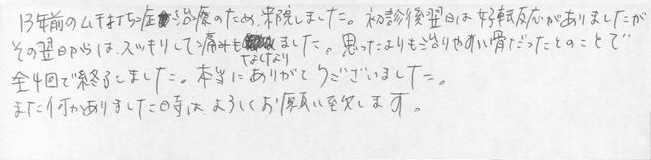 13年前のムチ打ち症治療のため、来院しました。初診後翌日は好転反応がありましたが
その翌日からは、スッキリして痛みもなくなりました。思ったよりも治りやすい骨だったとのことで
全4回で終了しました。本当にありがとうございました。
また何かありました時は、よろしくお願い致します。